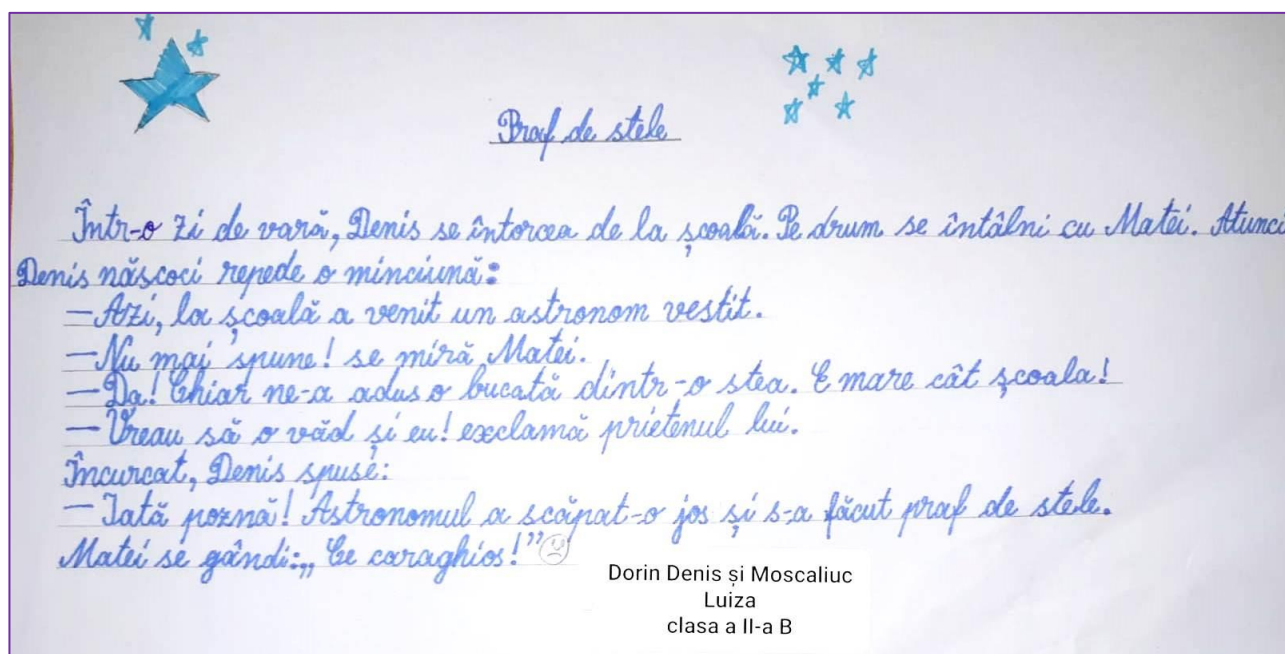 Praf de stele
Într-o zi de vară, Denis se întorcea de la școală. Pe drum se întâlni cu Matei. Atunci
Denis născoci repede o minciună:
– Azi, la școală a venit un astronom vestit.
– Nu mai spune! se miră Matei.
– Da! Chiar ne-a adus o bucată dintr-o stea. E mare cât școala!
– Vreau să o văd și eu! exclamă prietenul lui.
Încurcat, Denis spuse:
– Iată poznă! Astronomul a scăpat-o jos și s-a făcut praf de stele.
Matei se gândi: „Ce caraghios!”
Dorin Denis și Moscaliuc
Luiza
clasa a II-a B